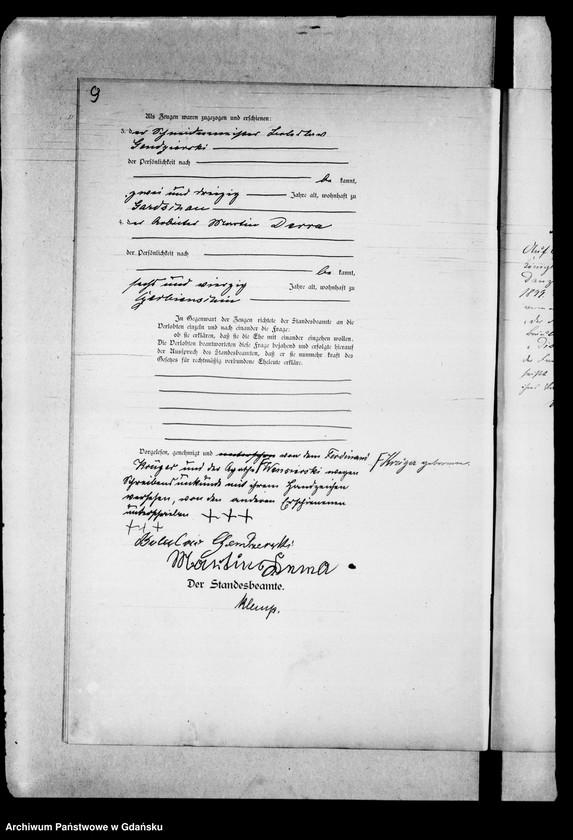 9
Als Zeugen waren zugezogen und erschienen:
3. der Schneidermeister Boleslaus
Gendzierski
der Persönlichkeit nach
be kannt,
zwei und dreizig Jahre alt, wohnhaft zu
Gardschau
4. der Arbeiter Martin Derra
der Persönlichkeit nach
be kannt,
sechs und vierzig Jahre alt, wohnhaft zu
In Gegenwart der Zeugen richtete der Standesbeamte an die
Verlobten einzeln und nach einander die Frage:
ob sie erklären, daß sie die Ehe mit einander eingehen wollen.
Die Verlobten beantworteten diese Frage bejahend und erfolgte hierauf
der Ausspruch des Standesbeamten, daß er sie nunmehr kraft des
Gesetzes für rechtmäßig verbundene Eheleute erkläre.
Vorgelesen, genehmigt und von dem Ferdinand
Krüger und der Agathe Γ Wensierski wegen Γ Krüger geborenen
Schreibensunkunde mit ihrem Handzeichen
versehen, von den anderen Erschienenen
unterschrieben +++
+++
Martin Derra
Der Standesbeamte.
Klemp.
Auf
Danz
189
der
Archiwum Państwowe w Gdańsku